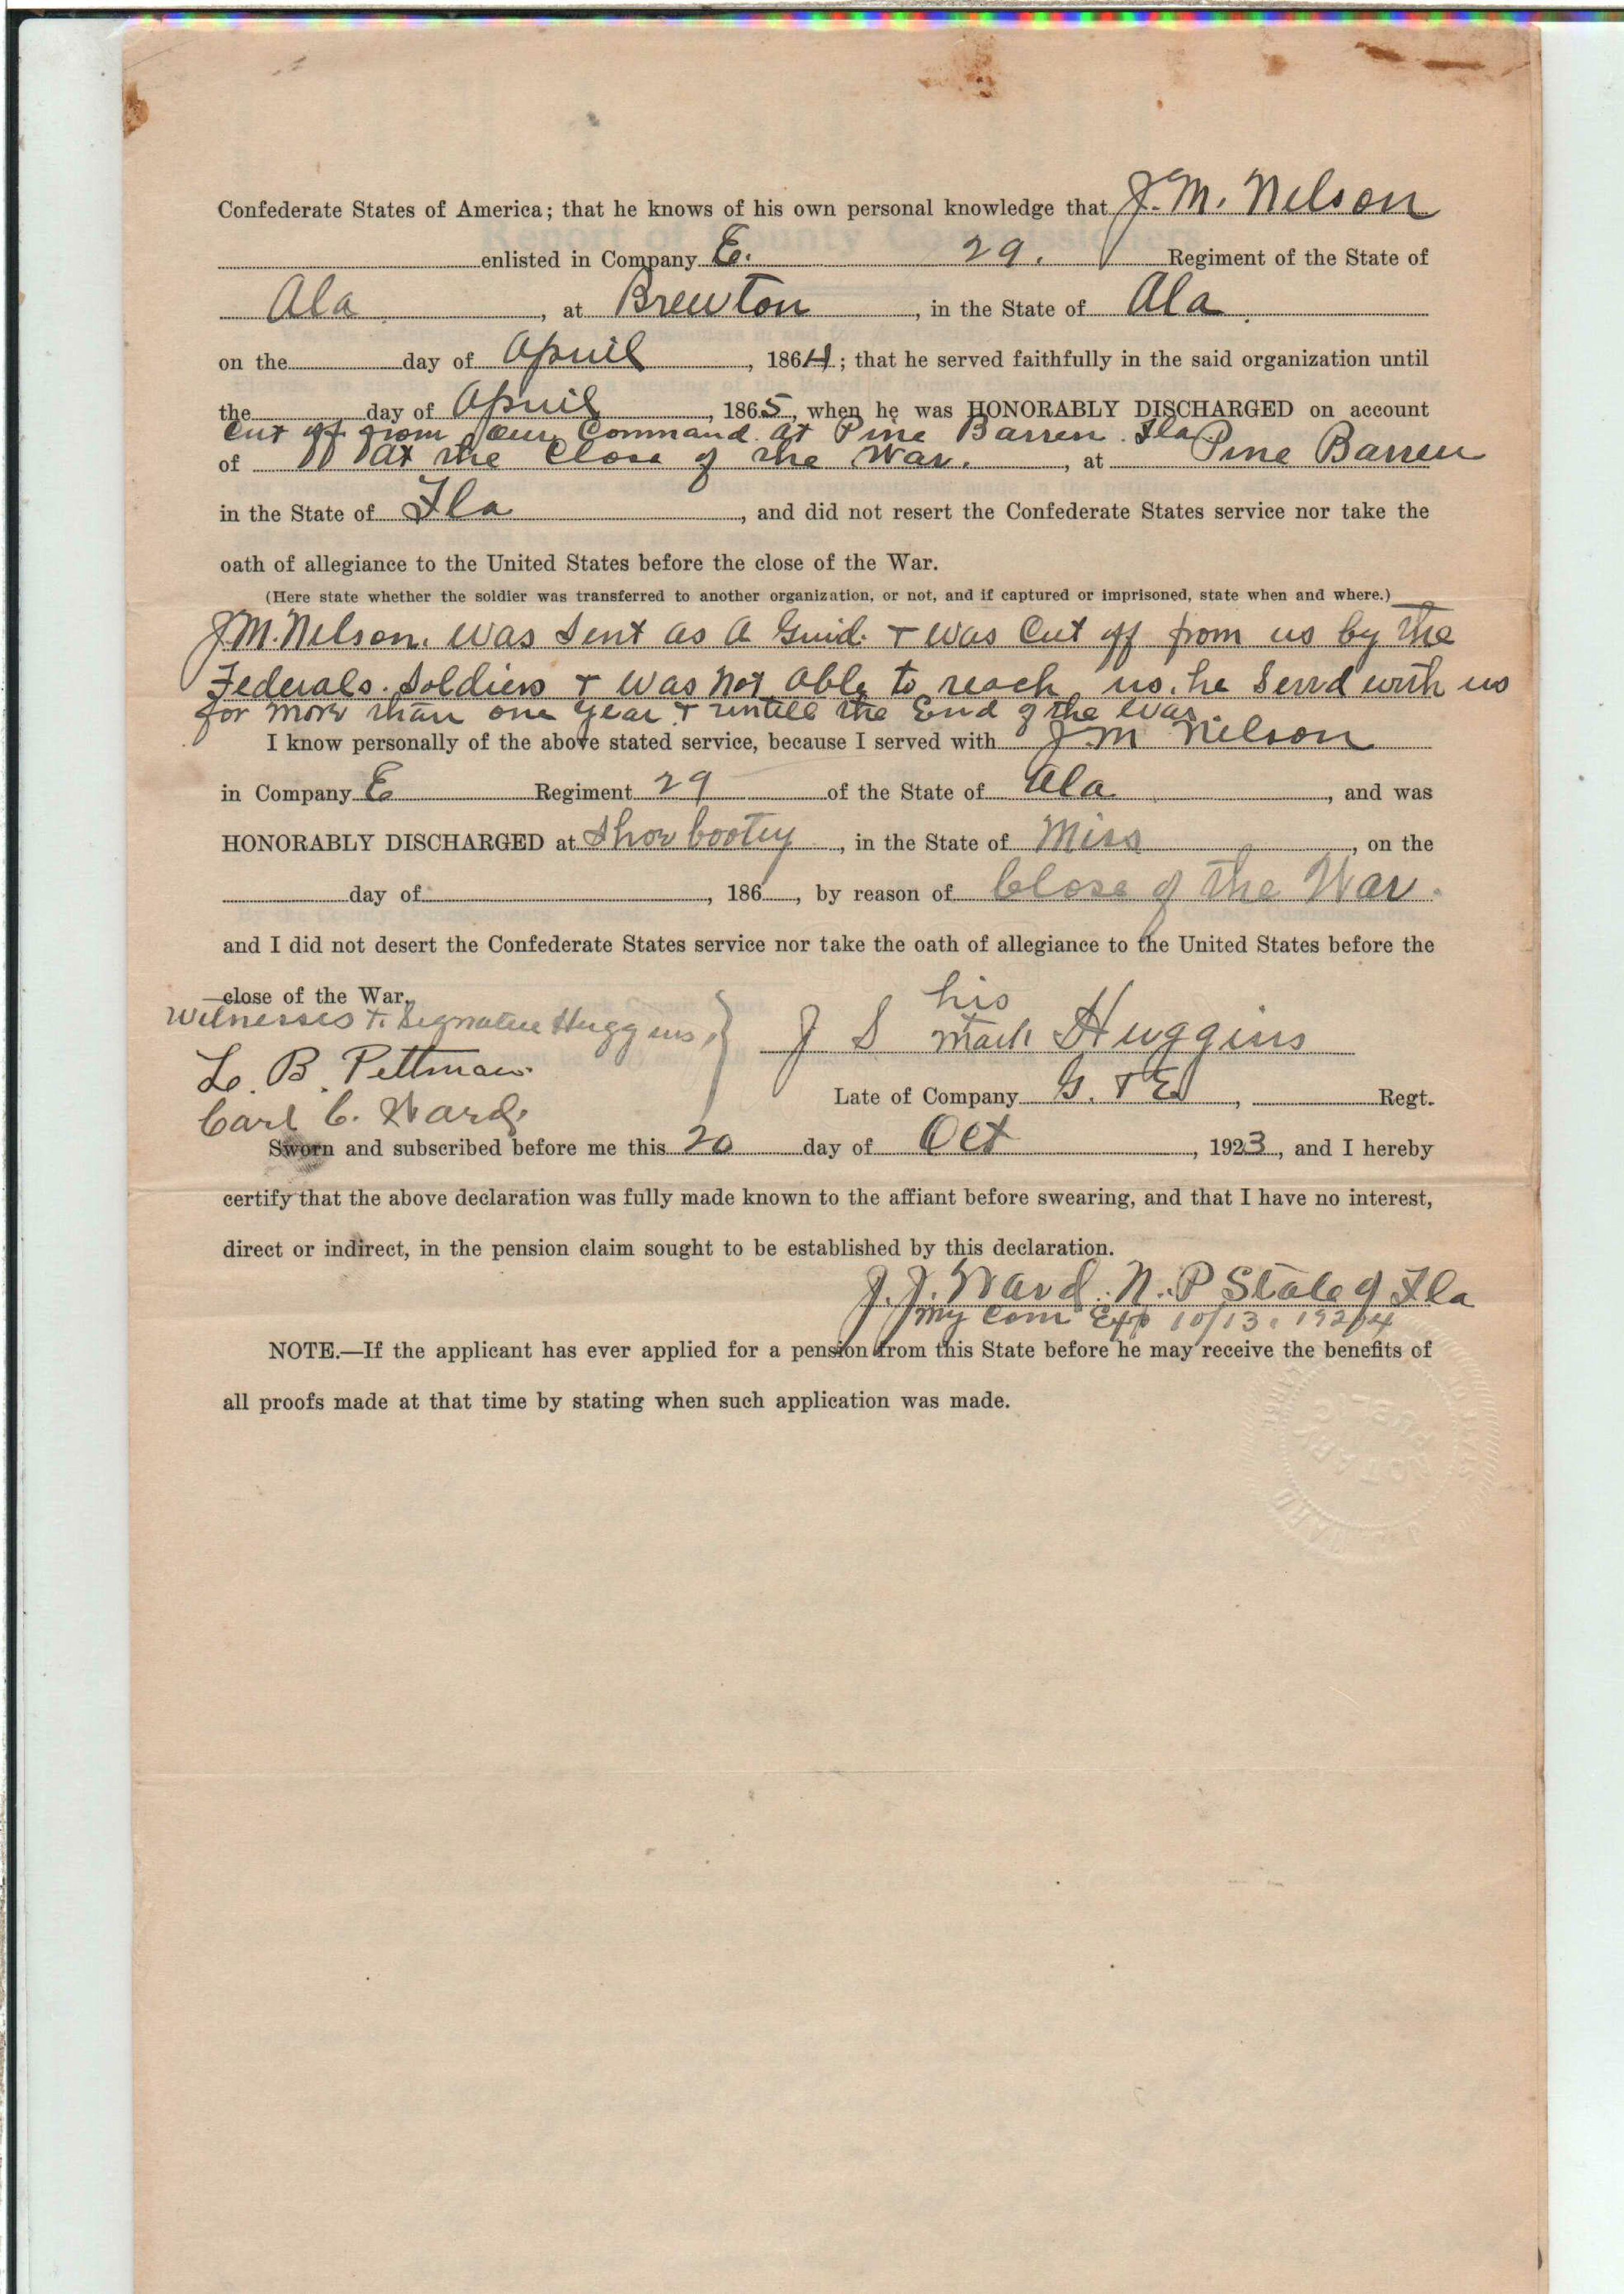 Confederate States of America; that he knows of his own personal knowledge that J. M. Nelson
enlisted in Company E. 29. Regiment of the State of
Ala, at Brewton, in the State of Ala
on the day of April, 1864; that he served faithfully in the said organization until
the day of April, 1865, when he was HONORABLY DISCHARGED on account
Cut off from our Command at Pine Barren Fla
of at the Close of the War., at Pine Barren
in the State of Fla, and did not resert the Confederate States service nor take the
oath of allegiance to the United States before the close of the War.
(Here state whether the soldier was transferred to another organization, or not, and if captured or imprisoned, state when and where.)
J M. Nelson. was Sent as a Guid. & was Cut off from us by the
Federals. Soldiers & was not able to reach us. he Servd with us
for more than one year & untill the End of the war.
I know personally of the above stated service, because I served with J M Nelson
in Company E Regiment 29 of the State of Ala, and was
HONORABLY DISCHARGED at Show bootey, in the State of Miss, on the
day of, 186, by reason of Close of the War.
and I did not desert the Confederate States service nor take the oath of allegiance to the United States before the
close of the War.
Witnesses to Signature Huggins,
his
J S mark Huggins
L. B. Pittman
Late of Company G. & E, Regt.
Carl C. Ward.
Sworn and subscribed before me this 20 day of Oct, 1923, and I hereby
certify that the above declaration was fully made known to the affiant before swearing, and that I have no interest,
direct or indirect, in the pension claim sought to be established by this declaration.
J. J. Ward. N. P State of Fla
My Com Exp 10/13. 1924
NOTE.—If the applicant has ever applied for a pension from this State before he may receive the benefits of
all proofs made at that time by stating when such application was made.
NOTARY
PUBLIC
WARD